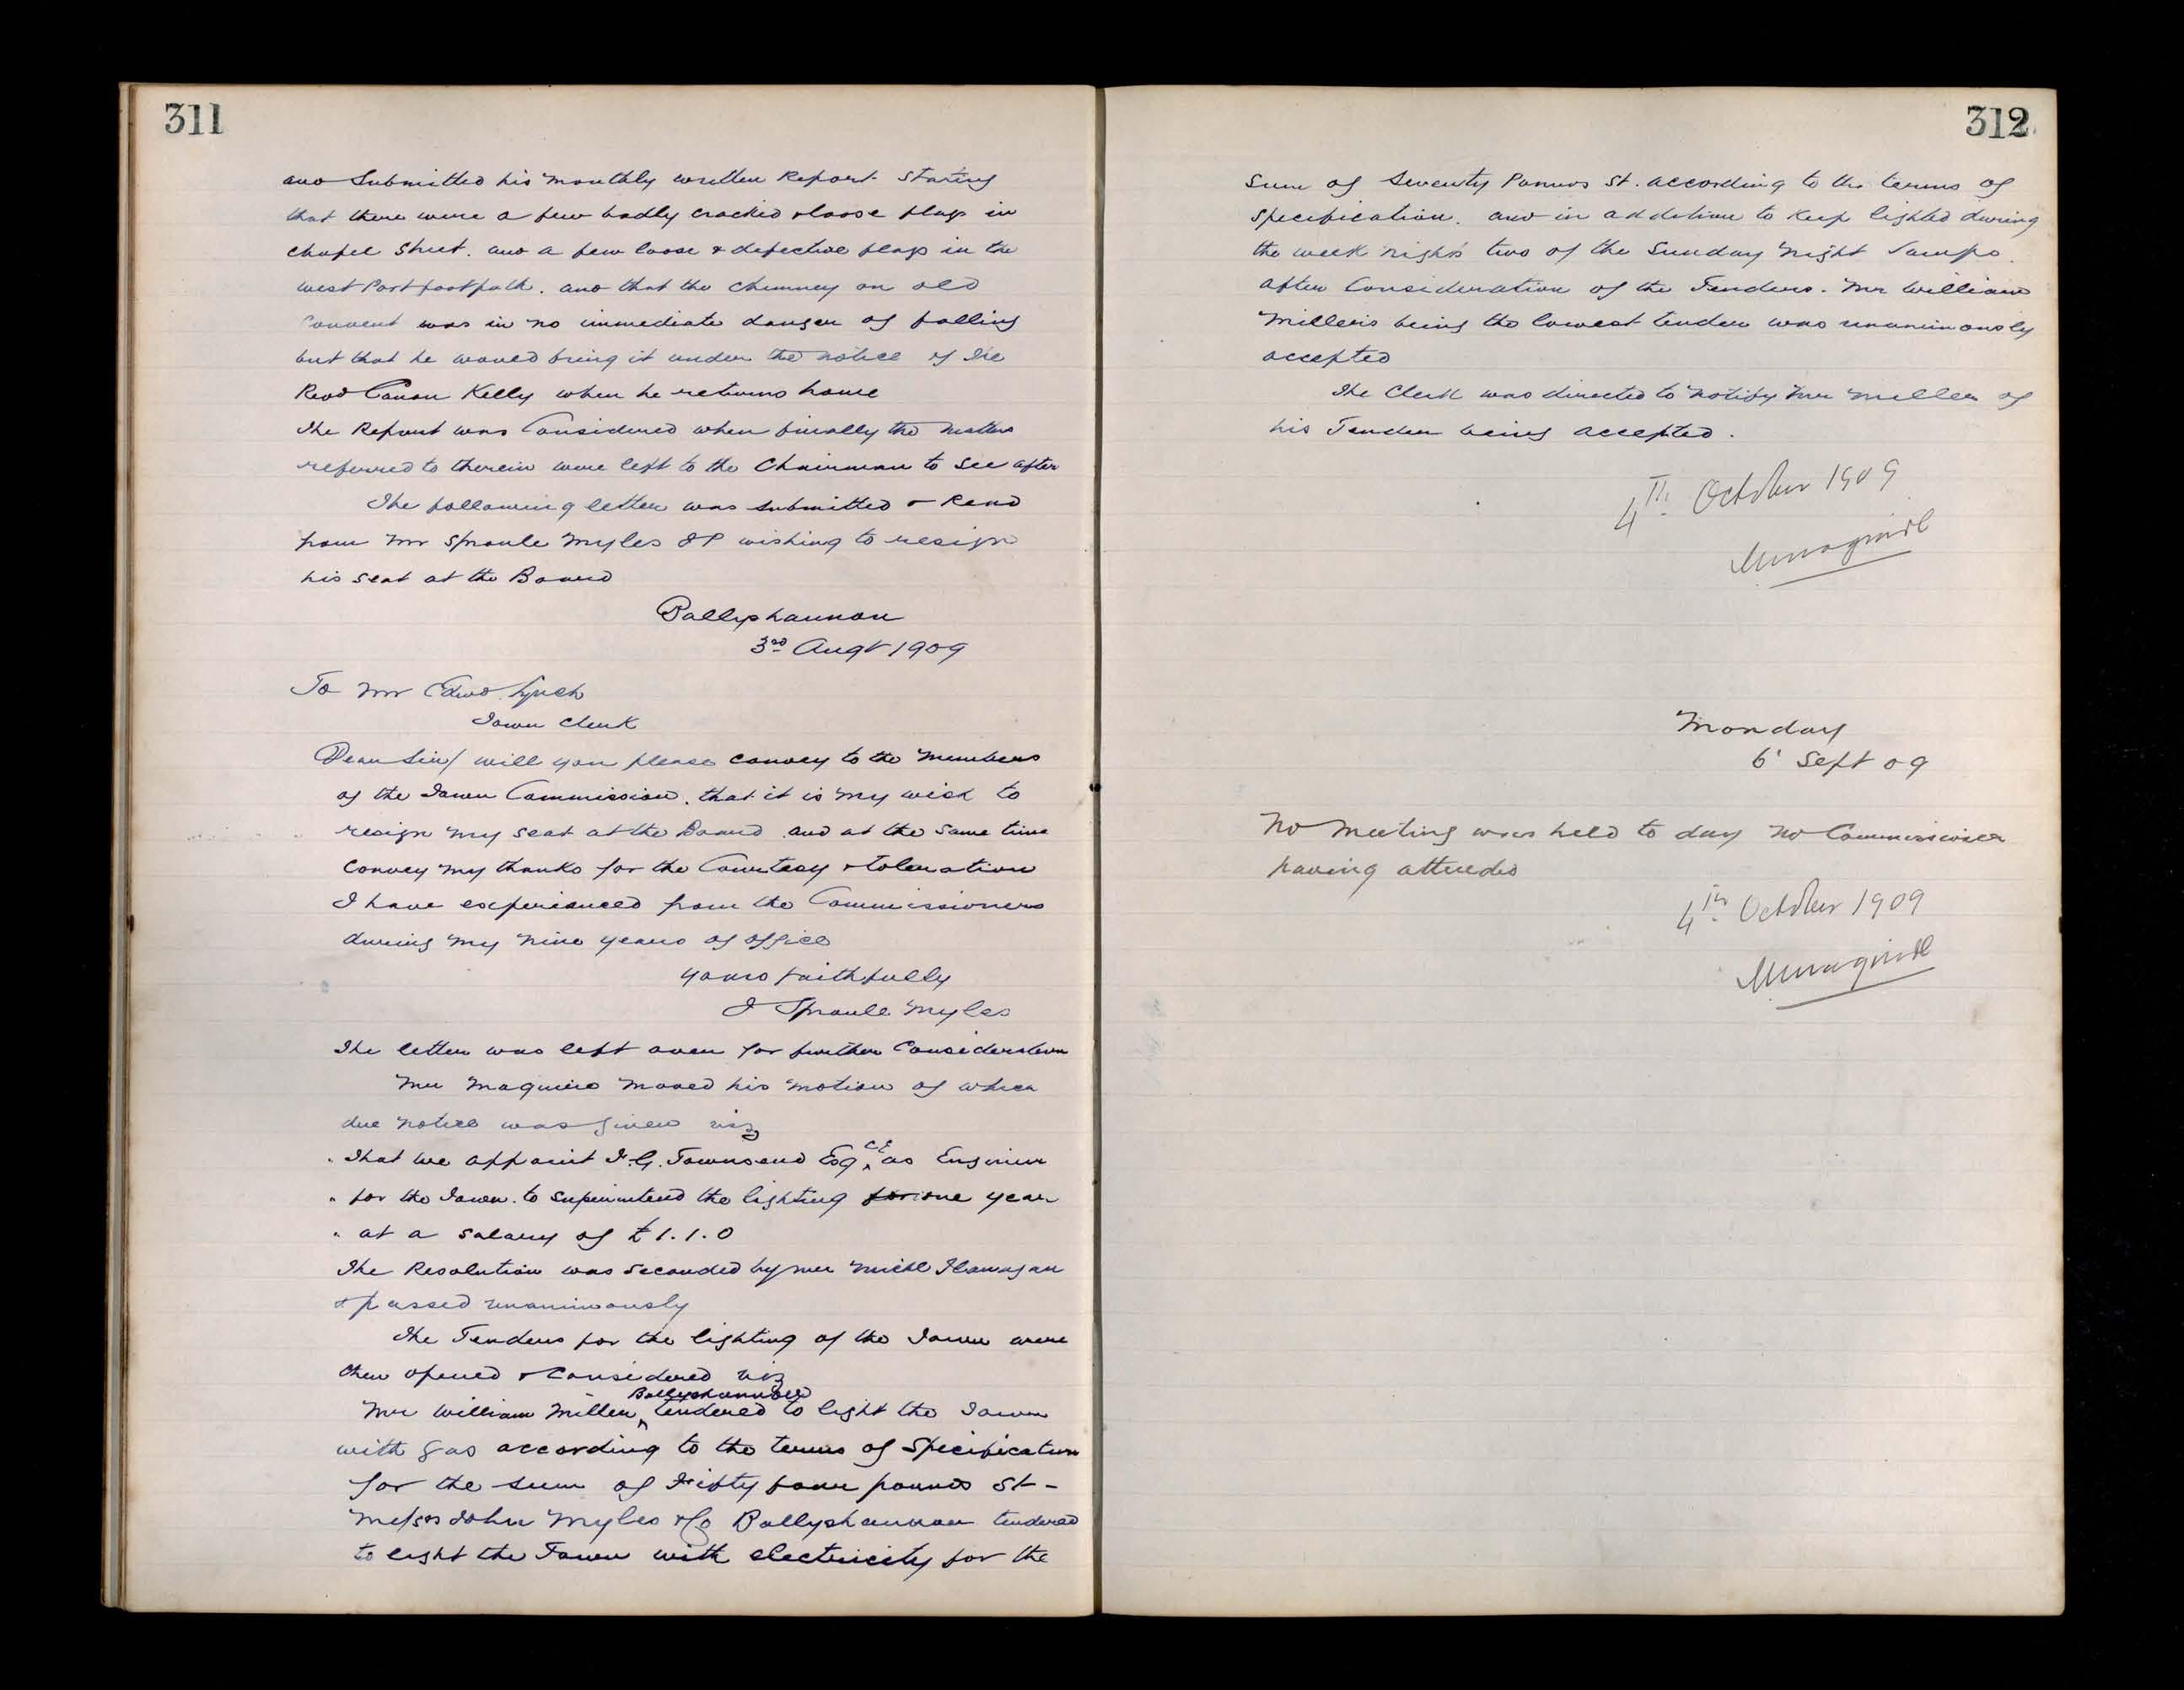 311
and Submitted his monthly written Report stating
that there were a few badly cracked & loose flags in
Chapel Street. and a few loose & defective flags in the
West Port footpath. and that the Chimney on old
Convent was in no immediate danger of falling
but that he would bring it under the notice of the
Revd Canon Kelly when he returns home
The Report was Considered when finally the matters
referred to therein were left to the Chairman to see after
The following letter was submitted & Read
from Mr Sproule Myles JP wishing to resign
his seat at the Board
Ballyshannon
3rd Augt 1909
To Mr Edwd Lynch
Town Clerk
Dear Sir/ will you please convey to the Members
of the Town Commission. that it is my wish to
resign my seat at the Board and at the same time
convey my thanks for the Courtesy & toleration
I have experienced from the Commissioners
during my nine years of office
yours faithfully
J Sproule Myles
The letter was left over for further Consideration
Mr Maguire moved his motion of which
due notice was given viz
" That we appoint F. G. Townsend Esq CE as Engineer
" for the Town. to superintend the lighting for one year
" at a salary of £1.1.0
The Resolution was seconded by Mr Michl Flanagan
& passed unanimously
The Tenders for the lighting of the Town were
then opened & Considered viz
Mr William Miller Ballyshannon tendered to light the Town
with gas according to the terms of Specification
for the sum of Fifty four pounds St-
Messrs John Myles & Co Ballyshannon tendered
to light the Town with electricity for the
312
Sum of Seventy Pounds St. according to the terms of
Specification. and in addition to keep lighted during
the week nights two of the Sunday night Lamps.
after Consideration of the Tenders. Mr William
Miller's being the lowest tender was unanimously
accepted
The Clerk was directed to notify Mr Miller of
his Tender being accepted.
4th October 1909
Monday
6' Sept 09
No Meeting was held to day no Commissioner
having attended
4th October 1909